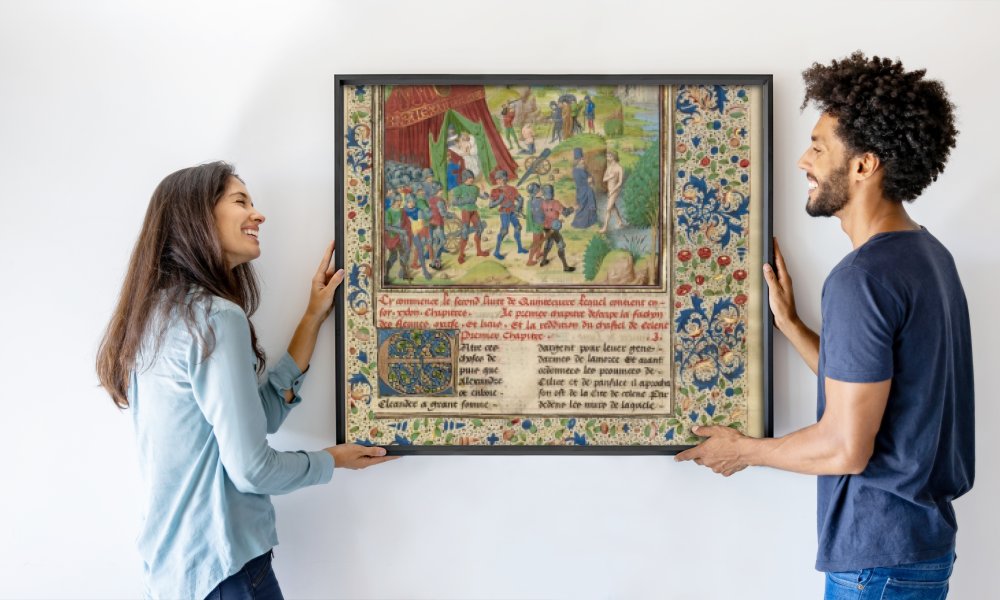 Cy commence le second liure de Quintecurce lequel contient en-
Chapitres. Le premier chapitre descripe la fachon
des fleuues, marse. et licus. Et la reddition du chastel de celene
Premier Chapitre
Entre ces
choses de
puis que
Alexandre
ot enuoie
Cleander a grant somme
dargent pour leuer gens-
darmes de lamoree Et auant
ordonnees les prouinces de
Cilice et de panfilie il aprocha
son ost de la Cite de celene Par
dedens les murs de laquele